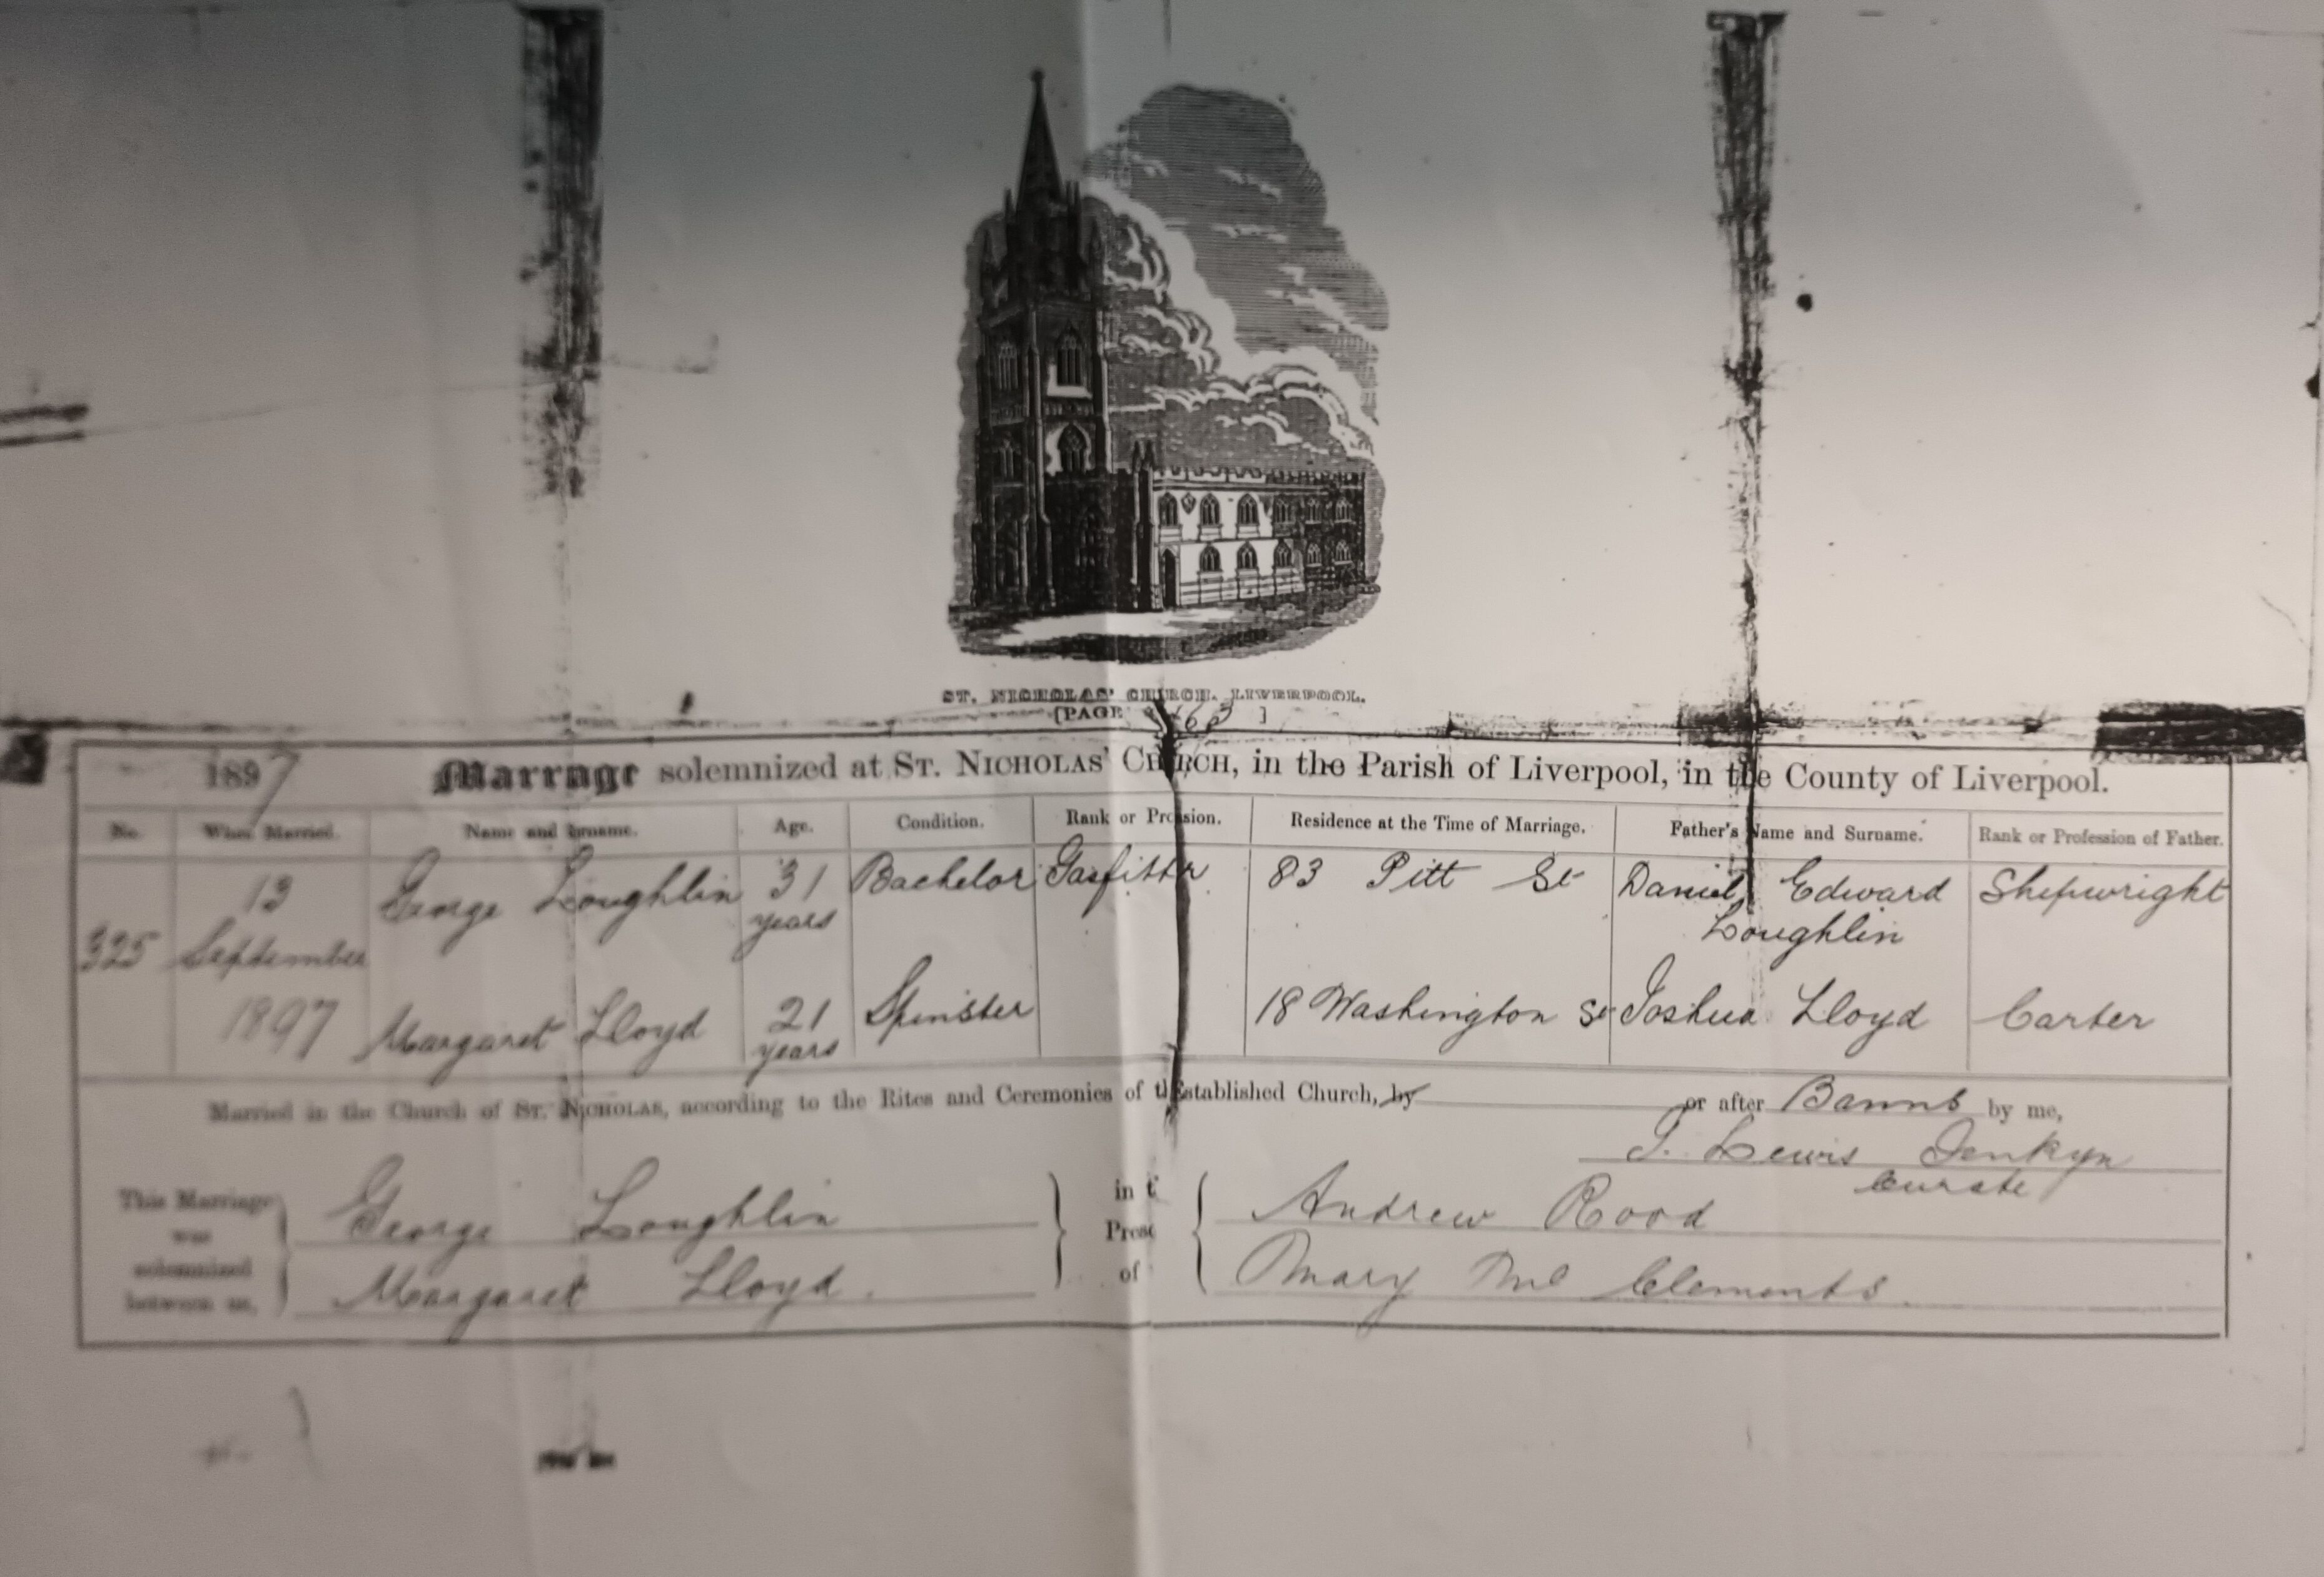 ST. NICHOLAS' CHURCH. LIVERPOOL.
[PAGE 163 ]
1897 Marrage solemnized at ST. NICHOLAS' CHURCH, in the Parish of Liverpool, in the County of Liverpool.
No. When Married. Name and Surname. Age. Condition. Rank or Profession. Residence at the Time of Marriage. Father's Name and Surname. Rank or Profession of Father.
325 13 September 1897
George Loughlin 31 years Bachelor Gasfitter 83 Pitt St Daniel Edward Loughlin Shipwright
Margaret Lloyd 21 years Spinster 18 Washington St Joshua Lloyd Carter
Married in the Church of ST. NICHOLAS, according to the Rites and Ceremonies of the Established Church, by or after Banns by me,
J. Lewis Jenkyn
Curate
This Marriage was solemnized between us,
George Loughlin
Margaret Lloyd.
in t
Prese
of
Andrew Rood
Mary Mc Clements